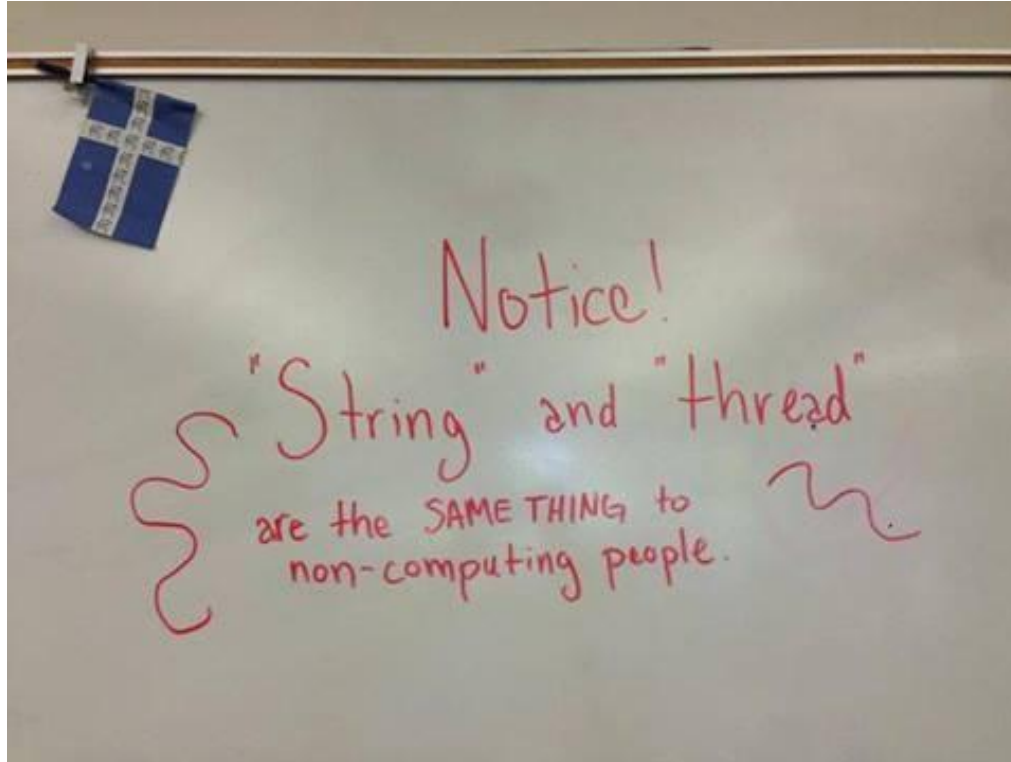 Notice!
"String" and "thread"
are the SAME THING to
non-computing people.